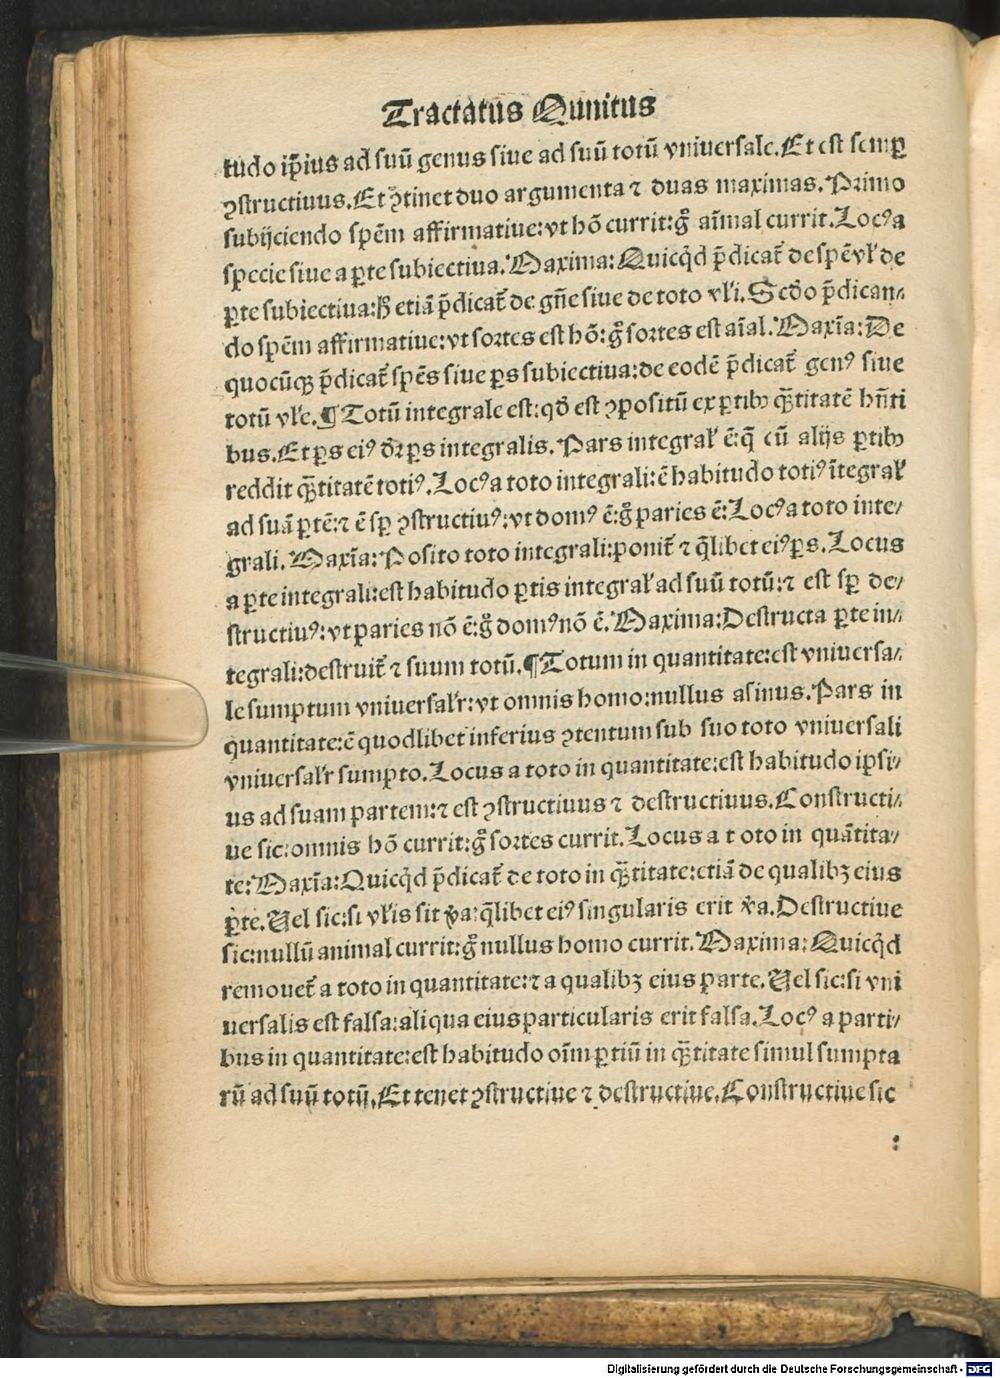 Tractatus Qunitus
tudo ip̄ius ad suū genus siue ad suū totū vniuersale. Et est semꝑ
ꝯstructiuus. Et ꝯtinet duo argumenta ⁊ duas maximas. Primo
subijciendo spēm affirmatiue: vt hō currit: gͦ aīmal currit. Locꝰ a
specie siue a ꝑte subiectiua. Maxima: Quicq̇d p̄dicat̄ de spē vl' de
ꝑte subiectiua: h̄ etiā p̄dicat̄ de gn̄e siue de toto vl'i. Scd̄o p̄dican⸗
do spēm affirmatiue: vt sortes est hō: gͦ sortes est aīal. Maxīa: De
quocūqꝫ p̄dicat̄ spēs siue ꝑs subiectiua: de eodē p̄dicat̄ genꝰ siue
totū vl'e. ¶ Totū integrale est: qd̄ est ꝯpositū ex ꝑtibꝫ q̄ꝫtitatē hn̄ti
bus. Et ꝑs eiꝰ dr̄ ꝑs integralis. Pars integral' ē: q̄ cū alijs ꝑtibꝫ
reddit q̄ꝫtitatē totiꝰ. Locꝰ a toto integrali: ē habitudo totiꝰ ītegral'
ad suā ꝑtē: ⁊ ē sꝑ ꝯstructiuꝰ: vt domꝰ ē: gͦ paries ē: Locꝰ a toto inte⸗
grali. Maxīa: Posito toto integrali: ponit̄ ⁊ q̄libet eiꝰ ꝑs. Locus
a ꝑte integrali: est habitudo ꝑtis integral' ad suū totū: ⁊ est sꝑ de⸗
structiuꝰ: vt paries nō ē: gͦ domꝰ nō ē. Maxima: Destructa ꝑte in⸗
tegrali: destruit̄ ⁊ suum totū. ¶ Totum in quantitate: est vniuersa⸗
le sumptum vniuersal'r: vt omnis homo: nullus asinus. Pars in
quantitate: ē quodlibet inferius ꝯtentum sub suo toto vniuersali
vniuersal'r sumpto. Locus a toto in quantitate: est habitudo ipsi⸗
us ad suam partem: ⁊ est ꝯstructiuus ⁊ destructiuus. Constructi⸗
ue sic: omnis hō currit: gͦ sortes currit. Locus a t oto in quātita⸗
te: Maxīa: Quicq̇d p̄dicat̄ de toto in q̄ꝫtitate: etiā de qualibꝫ eius
ꝑte. Uel sic: si vl'is sit v̄a: q̄libet eiꝰ singularis erit v̄a. Destructiue
sic: nullū animal currit: gͦ nullus homo currit. Maxima: Quicq̇d
remouet̄ a toto in quantitate: ⁊ a qualibꝫ eius parte. Uel sic: si vni
uersalis est falsa: aliqua eius particularis erit falsa. Locꝰ a parti⸗
bus in quantitate: est habitudo oīm ꝑtiū in q̄ꝫtitate simul sumpta
rū ad suū totū. Et tenet ꝯstructiue ⁊ destructiue. Constructiue sic
:
Digitalisierung gefördert durch die Deutsche Forschungsgemeinschaft - DFG